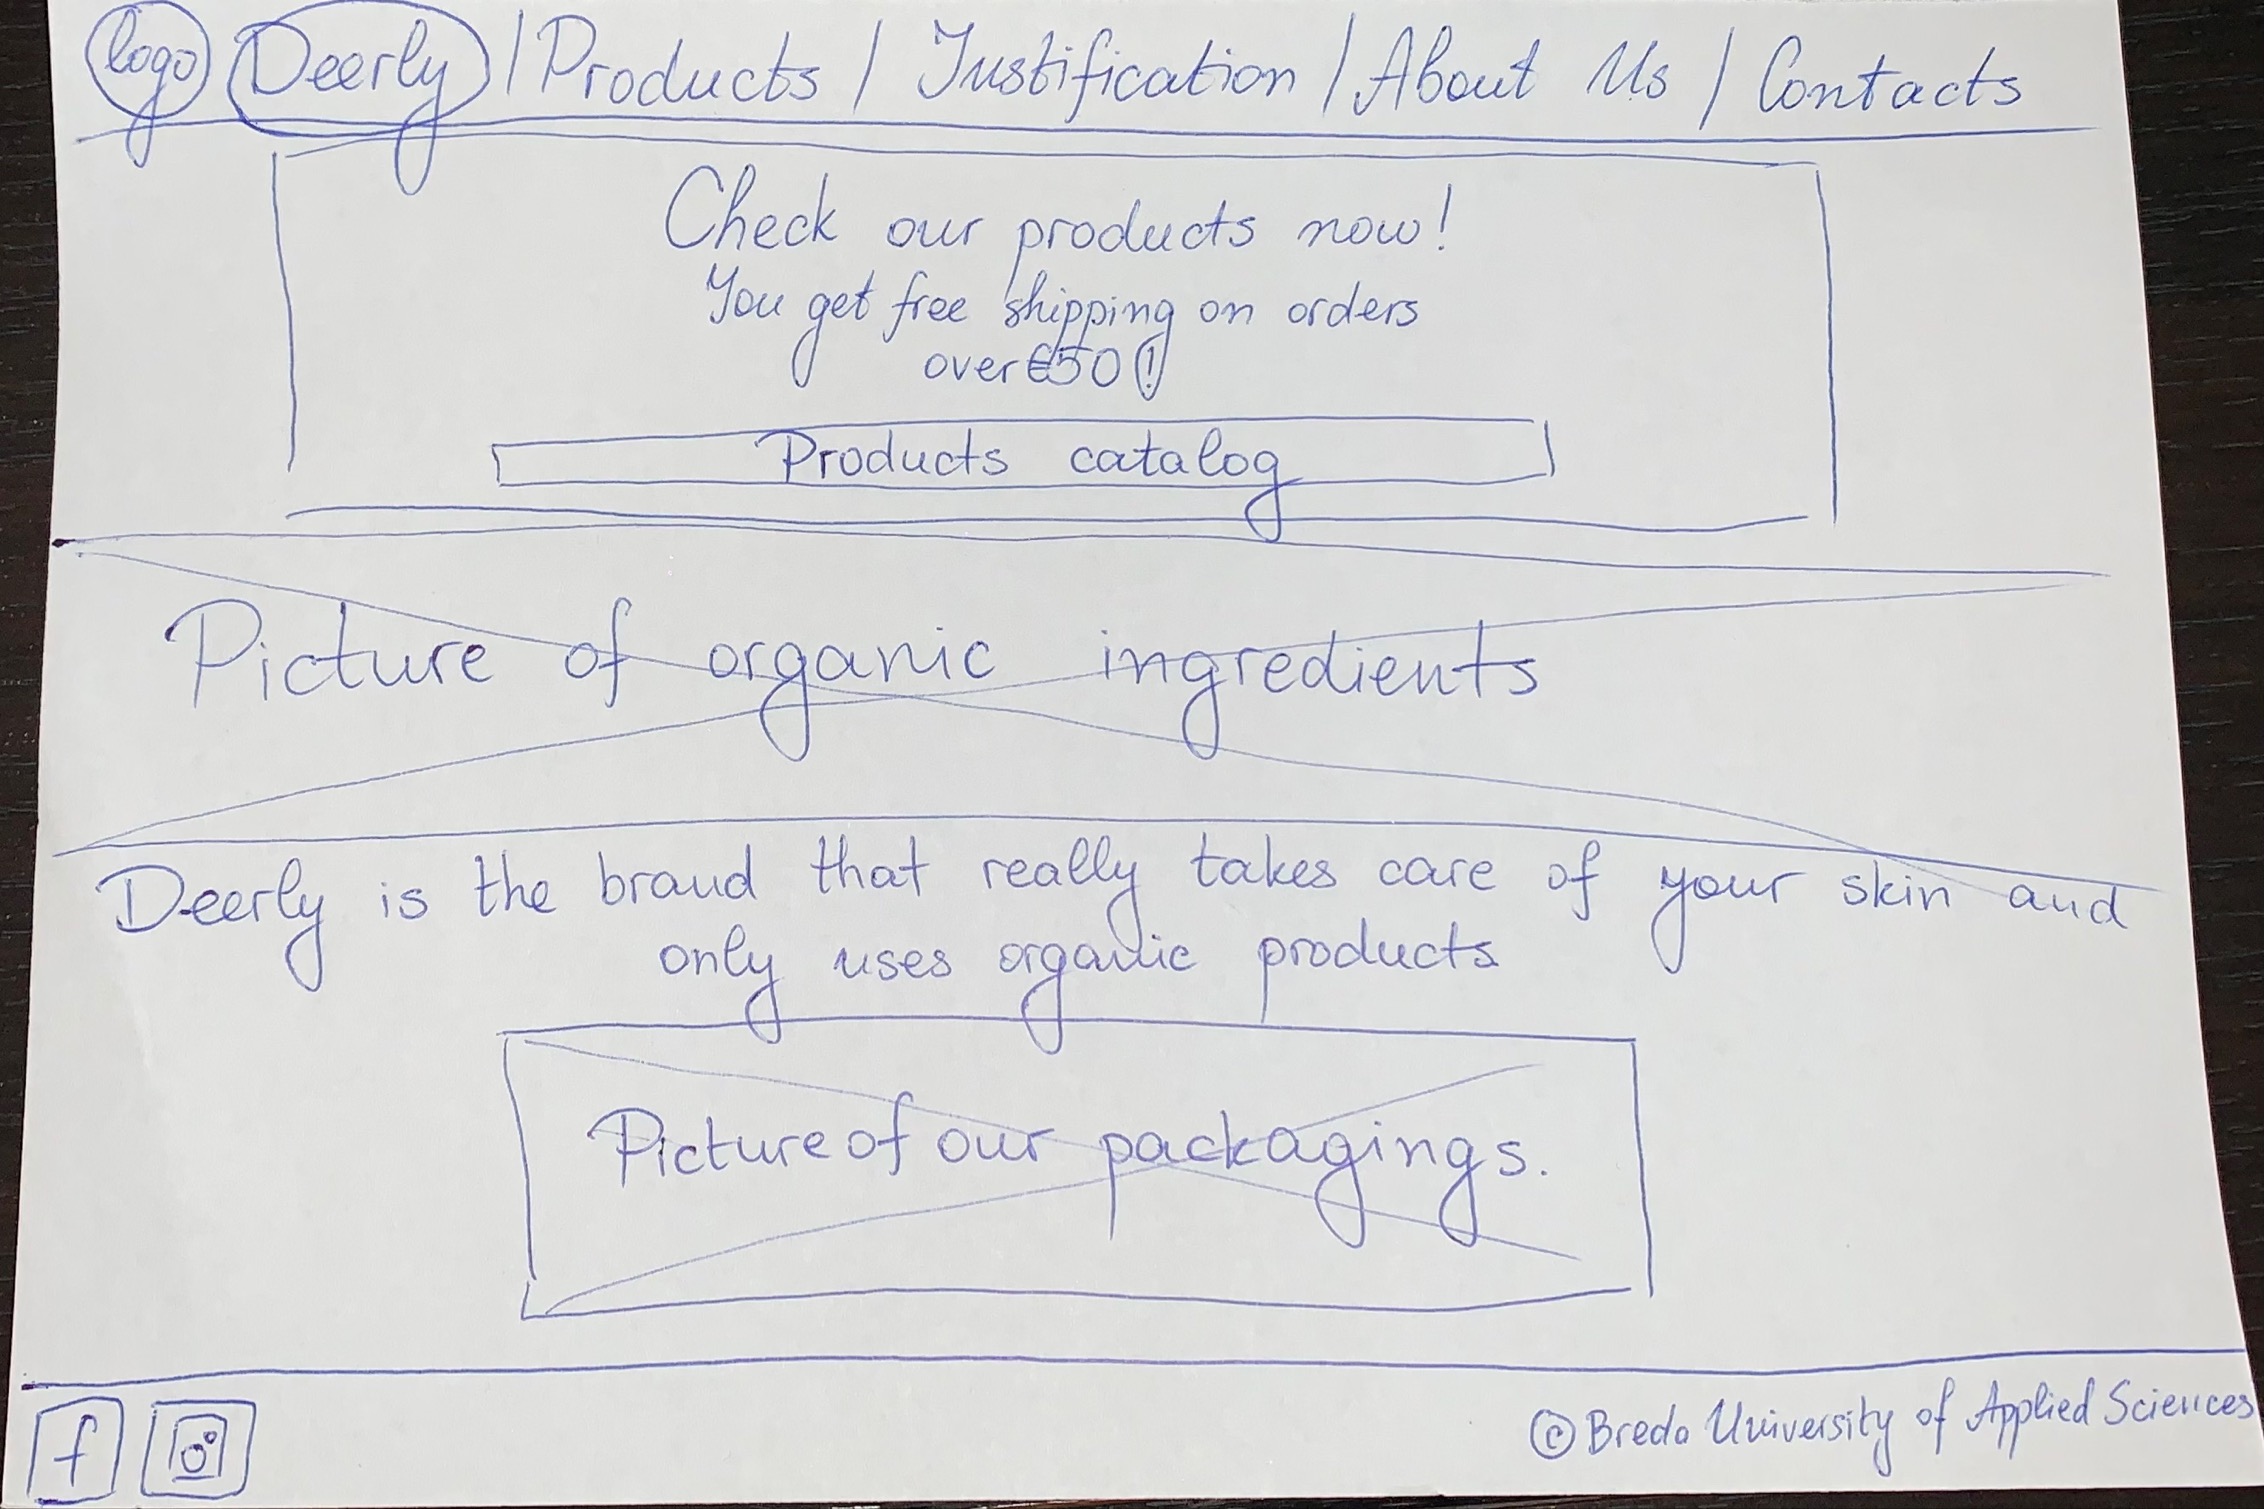 logo Deerly / Products / Justification / About Us / Contacts
Check our products now!
You get free shipping on orders
over €50!
Products catalog
Picture of organic ingredients
Deerly is the brand that really takes care of your skin and
only uses organic products
Picture of our packagings.
f
© Breda University of Applied Sciences